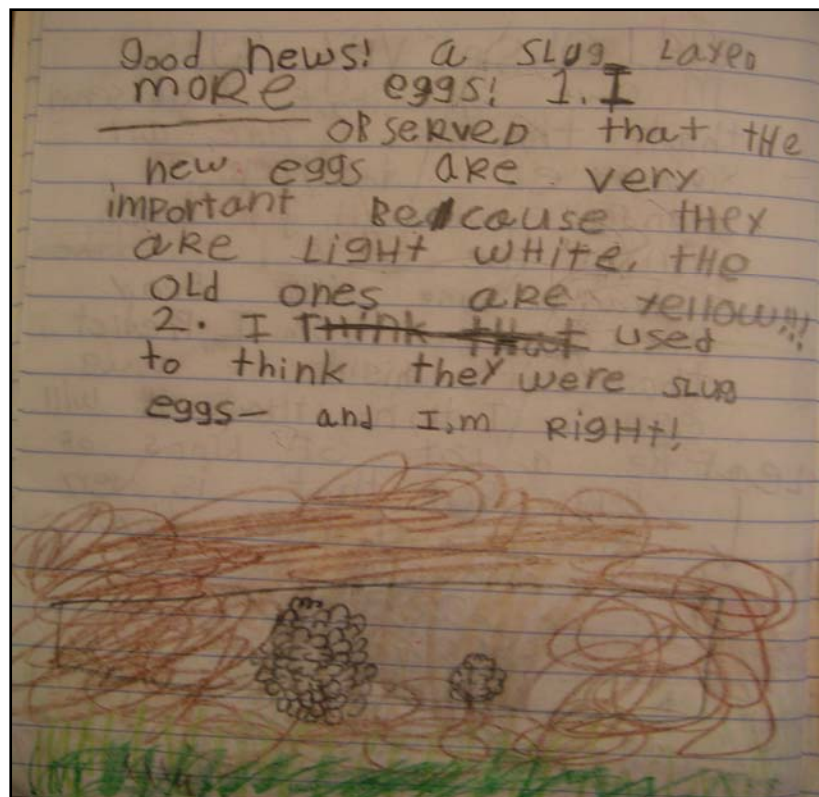 good news! a SLUg Layed
moRe eggs! 1. I
oBSeRVeD that tHe
new eggs aRe very
important Because tHey
aRe LigHt wHite, tHe
OLd ones aRe yeLLow!!!
2. I THink tHat used
to think they were SLUg
eggs— and I,m RigHt!